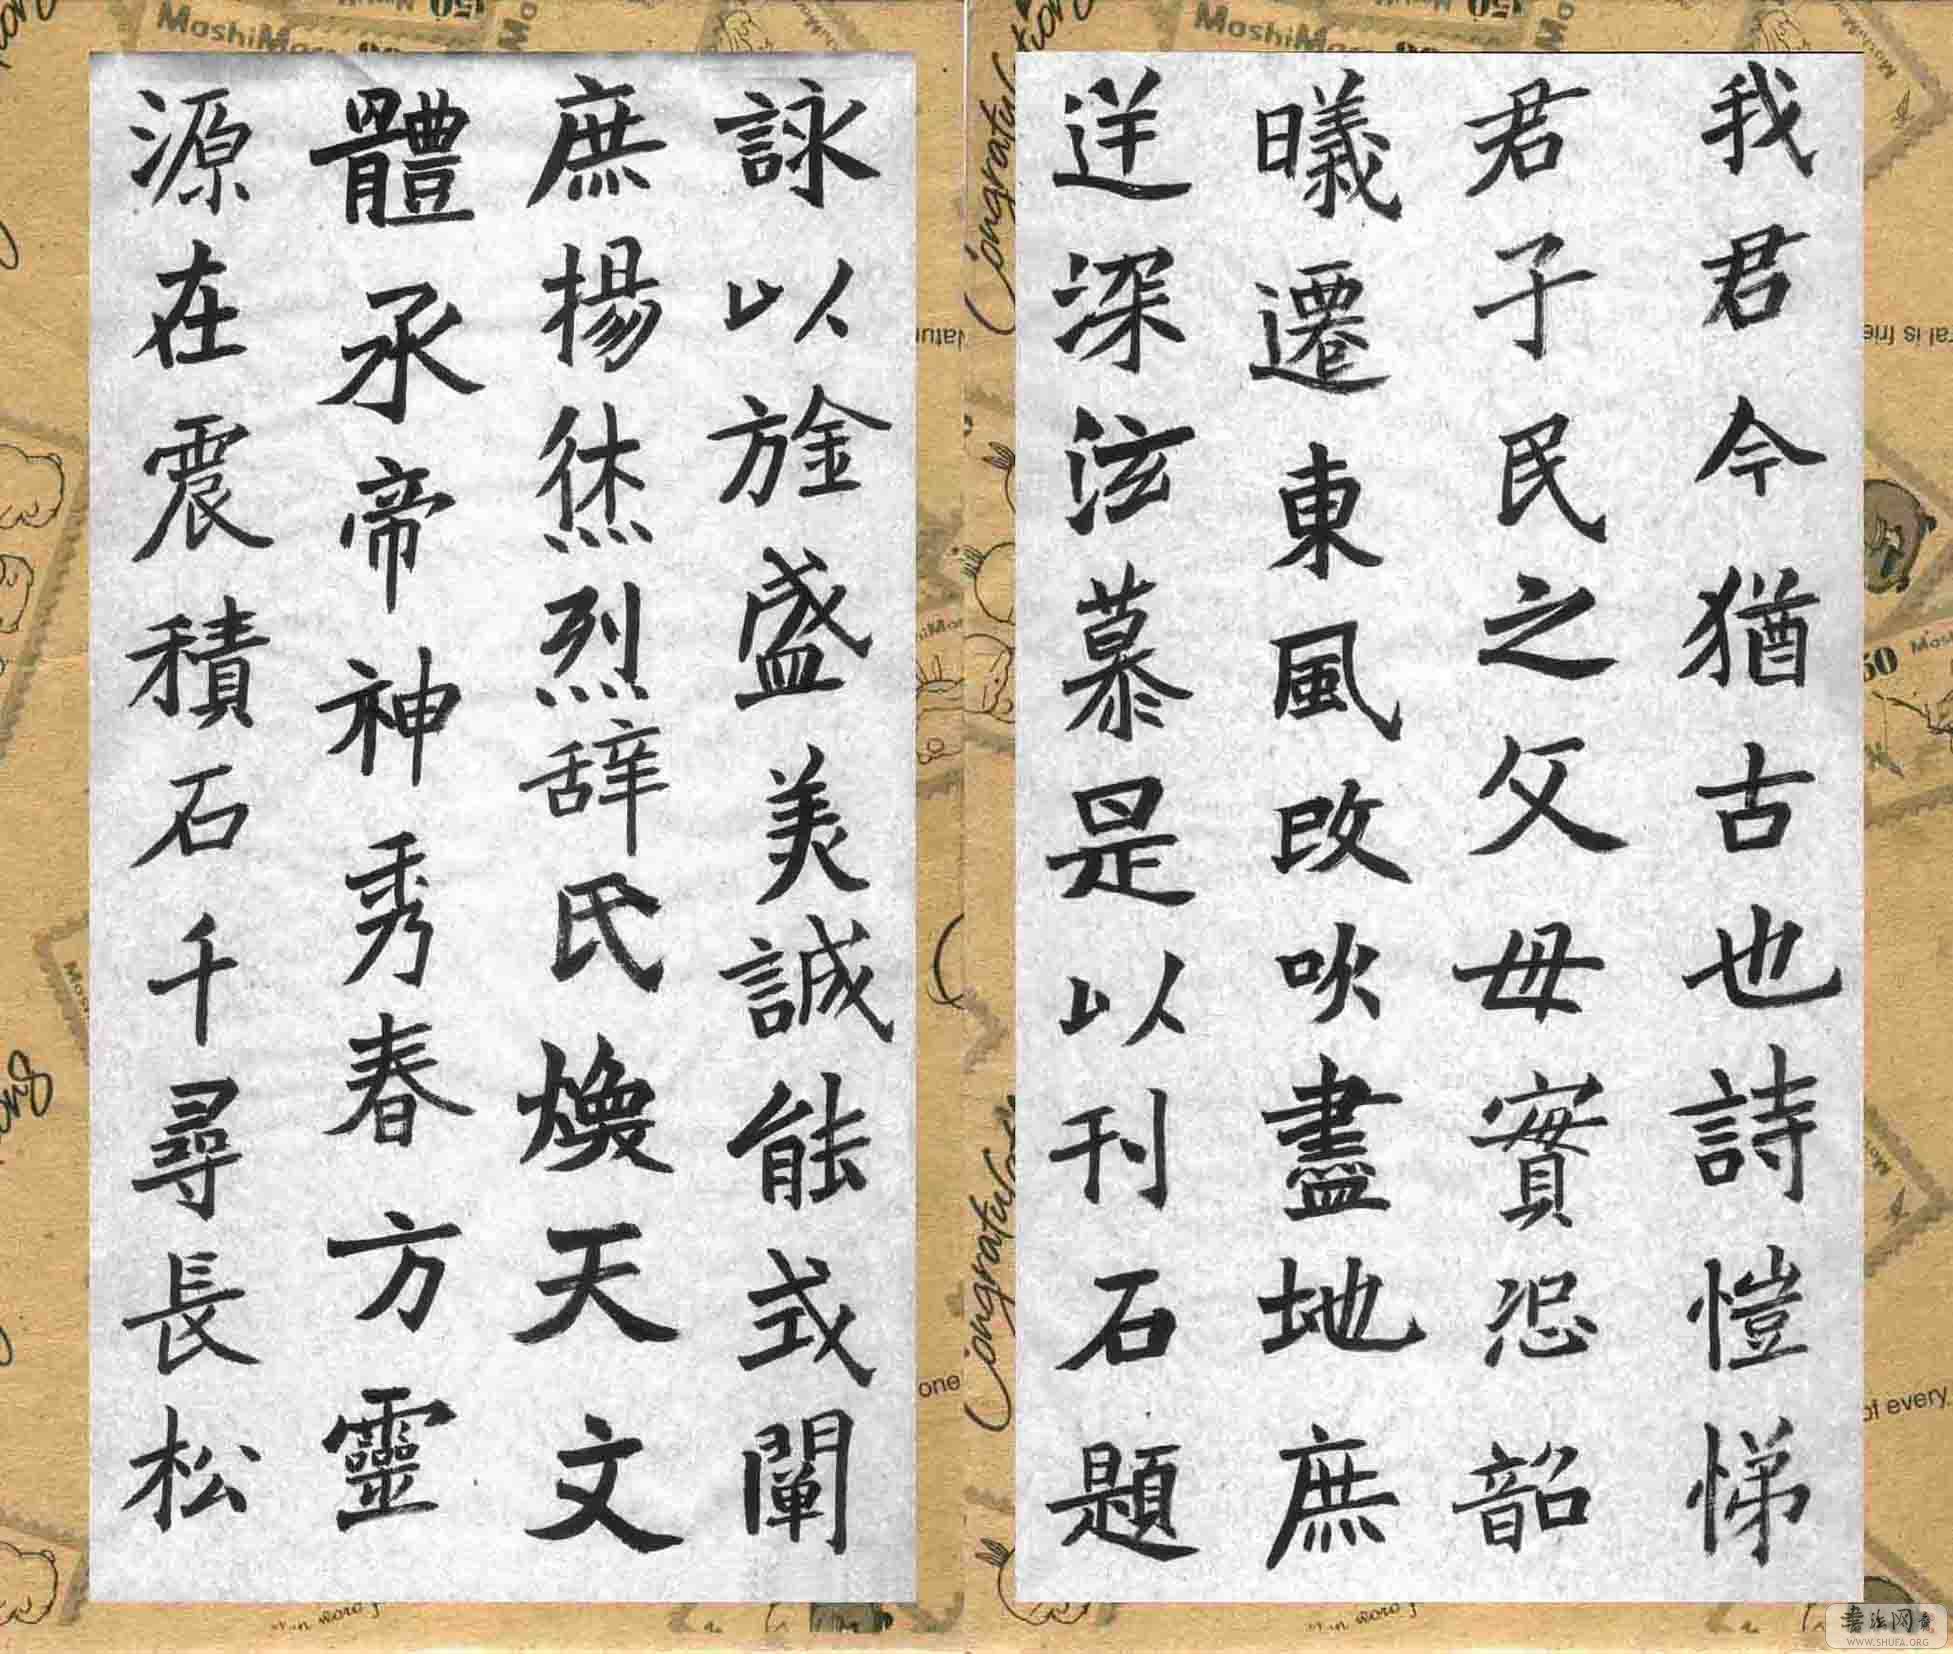 我君今猶古也詩愷悌
君子民之父母實恐韶
曦遷東風改吹盡地庶
逆深泫慕是以刊石題
詠以旌盛美誠能式闡
庶揚烋烈辞氏煥天文
體承帝神秀春方靈
源在震積石千尋長松
MashiMaro
MashiMaro
of every
one
WWW.SHUFA.ORG